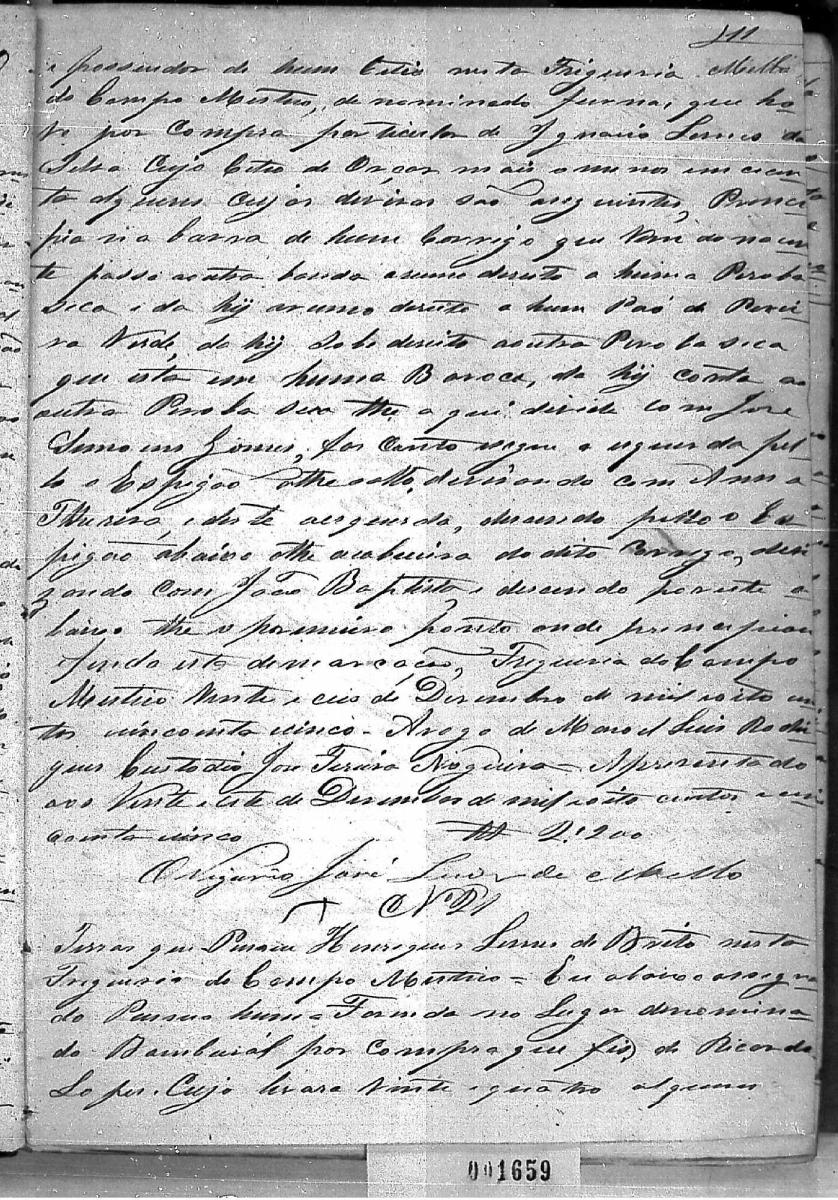 111
e possuidor de hum Citio nesta Friguesia Mulla
do Campo Mistico, de nominado furna, que ho
ve por Compra particular de Ygnacio Lemes da
Silva Cujo Citio de Orçar mais o menos em cien
ta alqueres Cujas divizas são as seguintes, Princi
pia na barra de hum Corrigo que Vem do nacen
te passa a outra banda a rumo direito a huma Peroba
seca e da hy a rumo direito a hum Páo de Perei
ra Verde, da hy Sobe direito a outra Peroba seca
que esta em huma Baroca, da hy corta a
outra Peroba seca the aqui divide com José
Gomes, faz Canto segue a esquerda pel
lo o Espigão athe o alto, devizando com Anna
Thereza, e deste a esquerda, descendo pello o Es
pigão abaixo athe a cabiceira do dito Corrigo, devi
zando com João Baptista e descendo por este a
baixo the o primeiro ponto onde principiou
finda esta demarcação, Friguesia do Campo
Mistico Vinte e ceis de Dezembro de mil e oito cen
tos cincoenta cinco - A rogo de Manoel Luis Rodri
gues Custodio José Nogueira - Apresentado
aos Vinte e sete de Dezembro de mil e oito centos e cin
coenta cinco 2$200
O Vigario José Luis de Mello
N
Terras que Possue Henriques Lemes de Brito nesta
Friguesia do Campo Mistico = Eu abaixo assigna
do Possuo huma Fazenda no Lugar denomina
do Bambuzál por compra que fis de Ricardo
Lopes. Cujo levara Vinte e quatro alqueres
001659